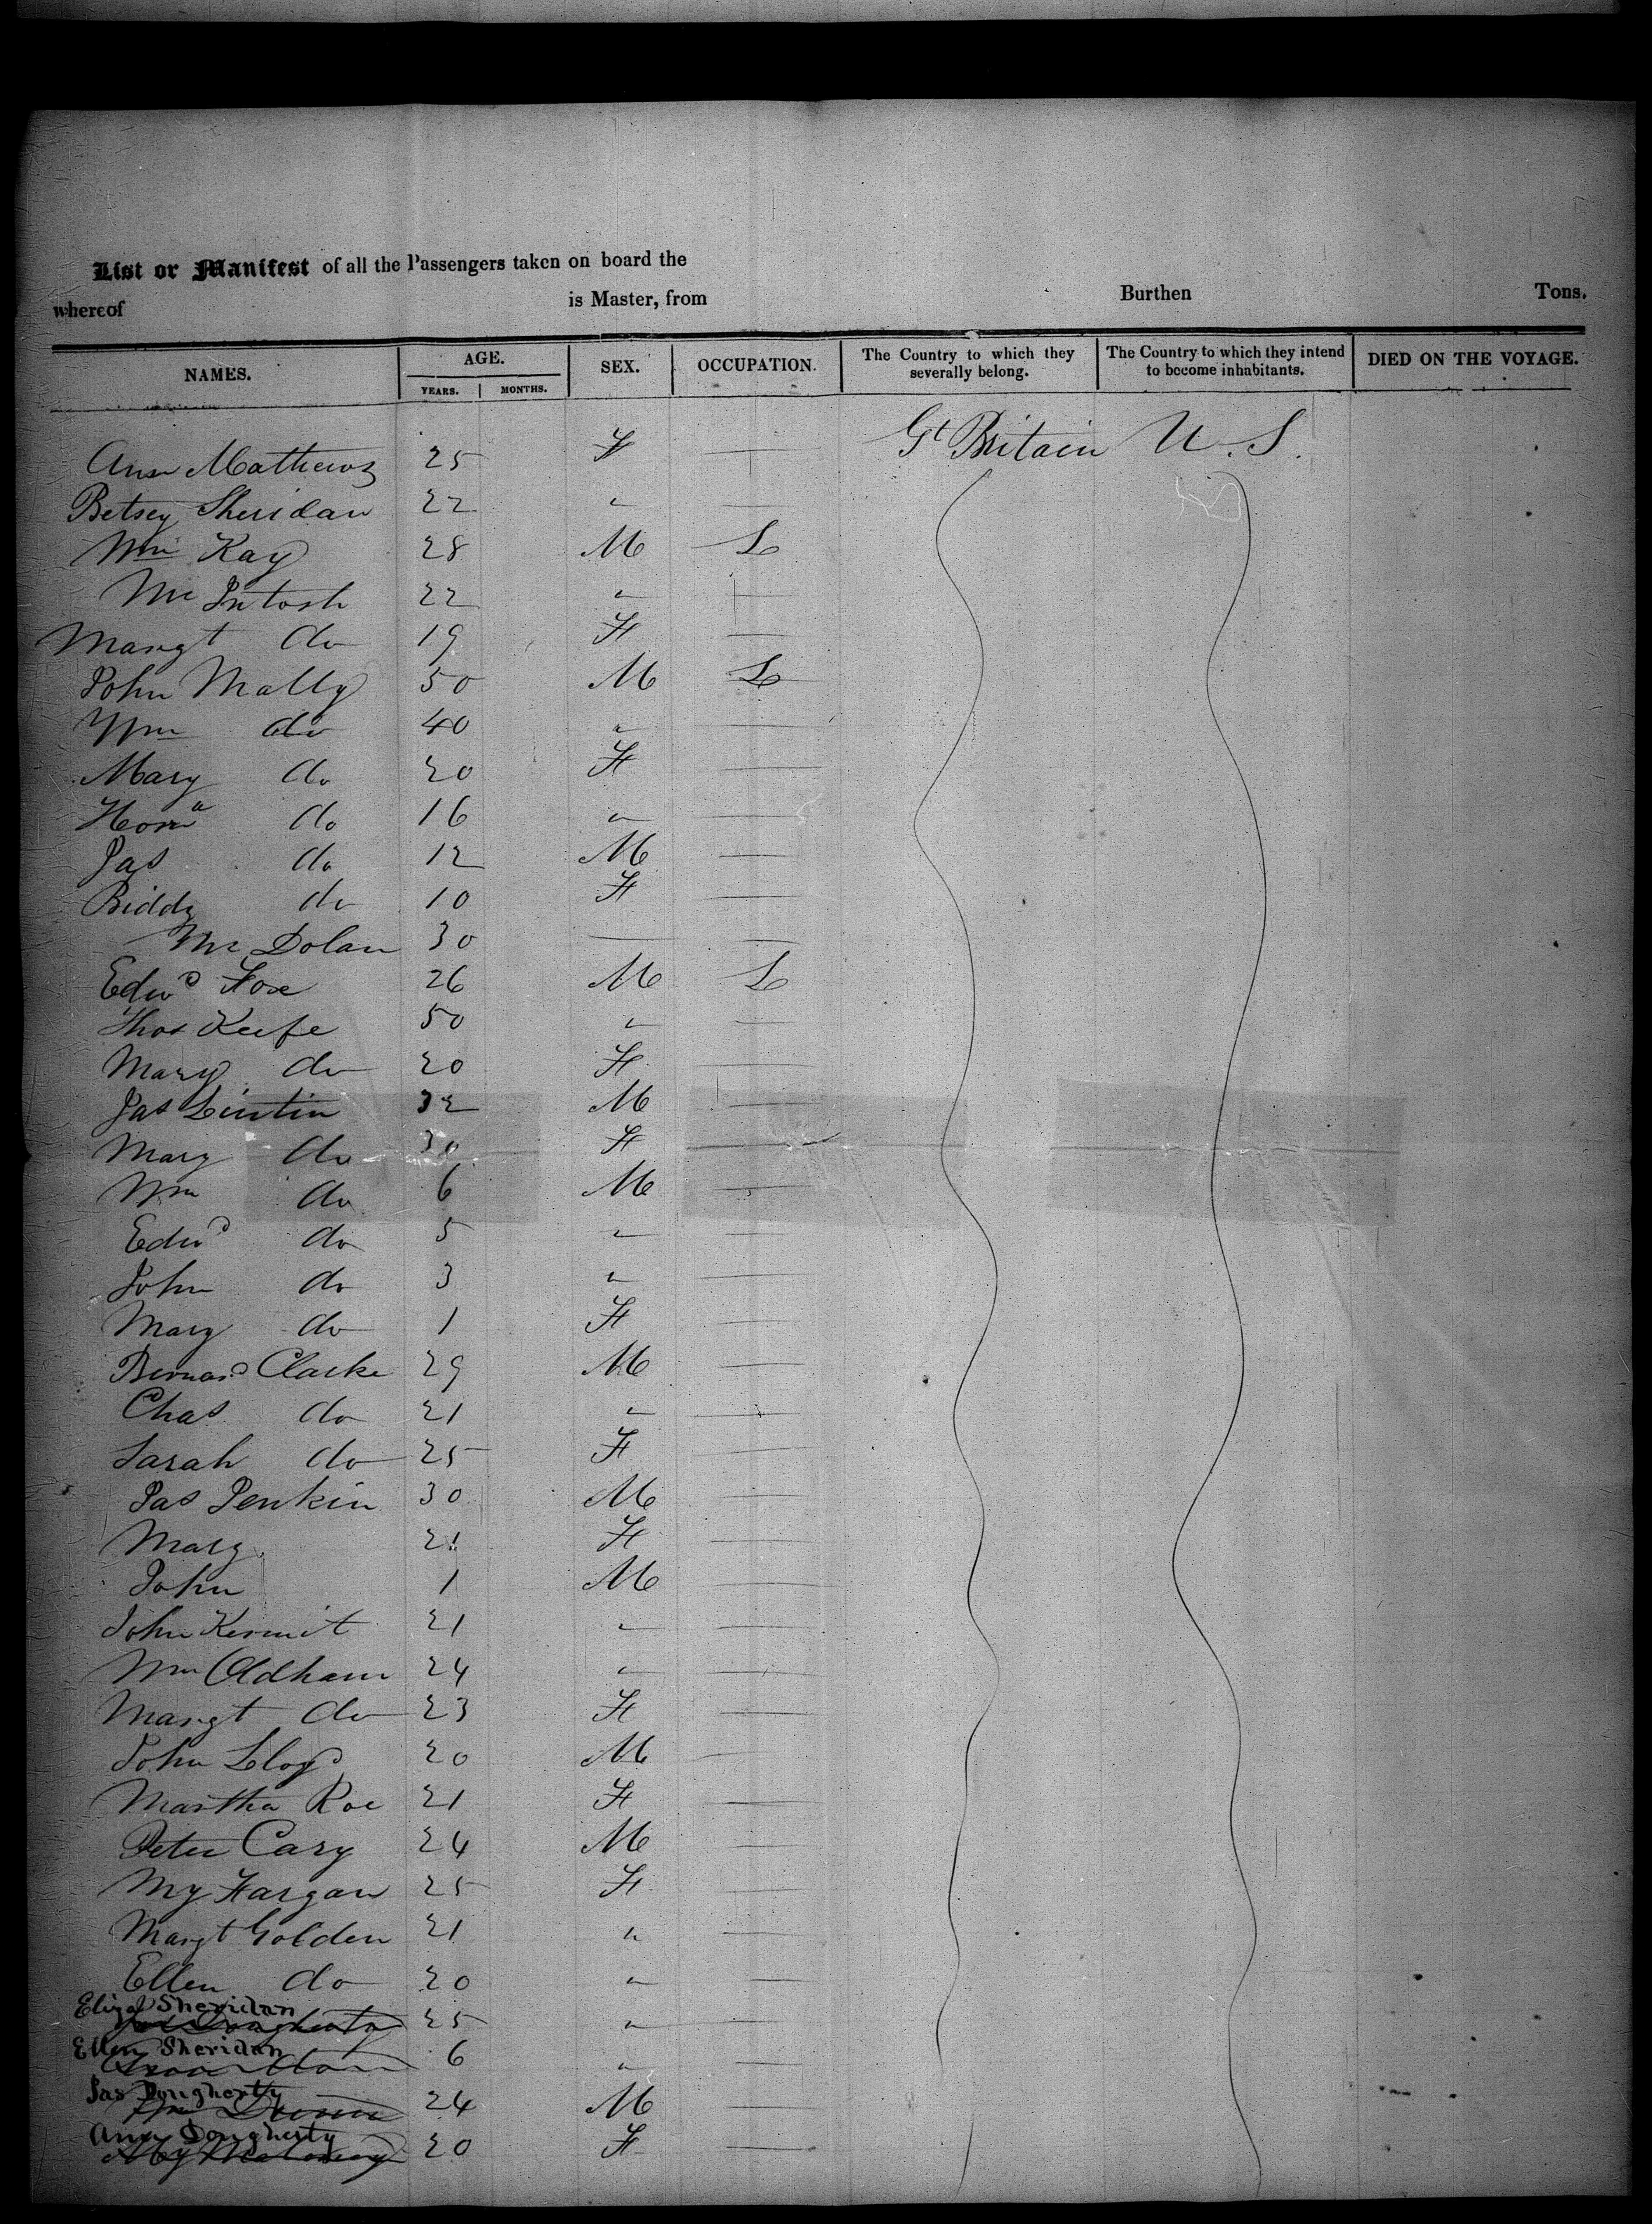 List or Manifest of all the Passengers taken on board the
whereof is Master, from Burthen Tons.
NAMES. AGE. SEX. OCCUPATION. The Country to which they severally belong. The Country to which they intend to become inhabitants. DIED ON THE VOYAGE.
YEARS. MONTHS.
Ann Mathews 25 F — Gt Britain U.S.
Betsey Sheridan 22 " —
Wm Kay 28 M L
Mc Intosh 22 " —
Margt do 19 F —
John Mally 50 M L
Wm do 40 " —
Mary do 20 F —
Honra do 16 " —
Jas do 12 M —
Biddy do 10 F —
Mc Dolan 30 — —
Edwd Fox 26 M L
Thos Keefe 50 " —
Mary do 20 F —
Jas Lintin 32 M —
Mary do 30 F —
Wm do 6 M —
Edwd do 5 " —
John do 3 " —
Mary do 1 F —
Bernard Clarke 29 M —
Chas do 21 " —
Sarah do 25 F —
Jas Jenkin 30 M —
Mary 21 F —
John 1 M —
John Kermit 21 " —
Wm Oldham 24 " —
Margt do 23 F —
John Lloyd 20 M —
Martha Roe 21 F —
Peter Cary 24 M —
My Fargan 25 F —
Margt Golden 21 " —
Ellen do 20 " —
Eliza Sheridan
Jas Dougherty 25 " —
Ellen Sheridan
6 " —
Jas Dougherty
24 M —
Ann Dougherty
My 20 F —